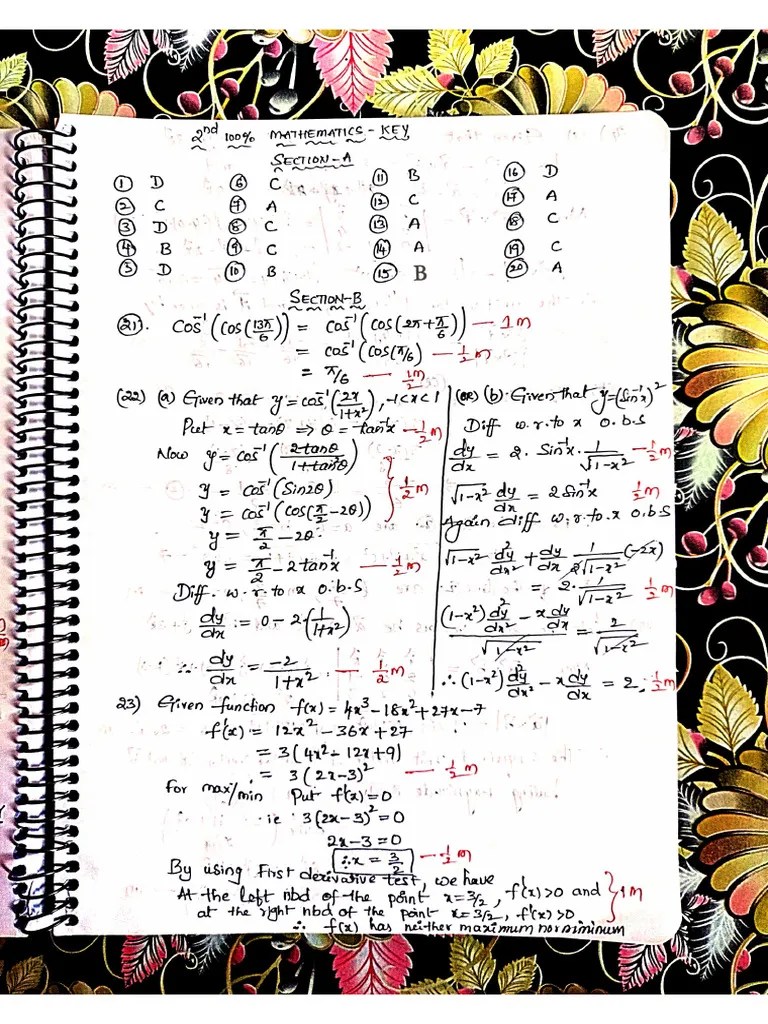 2nd 100% MATHEMATICS - KEY
SECTION-A
① D ⑥ C ⑪ B ⑯ D
② C ⑦ A ⑫ C ⑰ A
③ D ⑧ C ⑬ A ⑱ C
④ B ⑨ C ⑭ A ⑲ C
⑤ D ⑩ B ⑮ B ⑳ A
SECTION-B
㉑. Cos⁻¹(cos(13π/6)) = cos⁻¹(cos(2π+π/6)) — 1m
= cos⁻¹(cos(π/6)) — 1/2 m
= π/6 — 1/2 m
(22) (a) Given that y = cos⁻¹(2x/(1+x²)), -1<x<1
Put x = tanθ ⇒ θ = tan⁻¹x — 1/2 m
Now y = cos⁻¹(2tanθ/(1+tan²θ))
y = cos⁻¹(Sin2θ)
y = cos⁻¹(cos(π/2 - 2θ)) } 1/2 m
y = π/2 - 2θ
y = π/2 - 2tan⁻¹x — 1/2 m
Diff. w.r.to x o.b.s
dy/dx = 0 - 2(1/(1+x²))
∴ dy/dx = -2/(1+x²) — 1/2 m
(OR) (b). Given that y = (sin⁻¹x)²
Diff w.r.to x o.b.s
dy/dx = 2. Sin⁻¹x. 1/√(1-x²) — 1/2 m
√(1-x²) dy/dx = 2Sin⁻¹x 1/2 m
Again diff w.r.to x o.b.s
√(1-x²) d²y/dx² + dy/dx 1/(2√(1-x²)) (-2x)
= 2. 1/√(1-x²) 1/2 m
((1-x²) d²y/dx² - x dy/dx)/√(1-x²) = 2/√(1-x²)
∴ (1-x²) d²y/dx² - x dy/dx = 2. 1/2 m
23) Given function f(x) = 4x³-18x²+27x-7
f'(x) = 12x² - 36x + 27
= 3(4x² - 12x + 9)
= 3(2x-3)² — 1/2 m
For max/min Put f'(x) = 0
ie 3(2x-3)² = 0
2x-3 = 0
∴ x = 3/2 — 1/2 m
By using First derivative test, we have
At the left nbd of the point x=3/2, f'(x)>0 and
at the right nbd of the point x=3/2, f'(x)>0 } 1m
∴ f(x) has neither maximum nor minimum